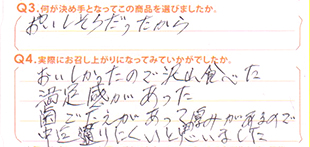 Q3.何が決め手となってこの商品を選びましたか。
おいしそうだったから
Q4.実際にお召し上がりになってみていかがでしたか。
おいしかったので沢山食べた
満足感があった
歯ごたえがあって厚みがあるので
又送りたいと思いました